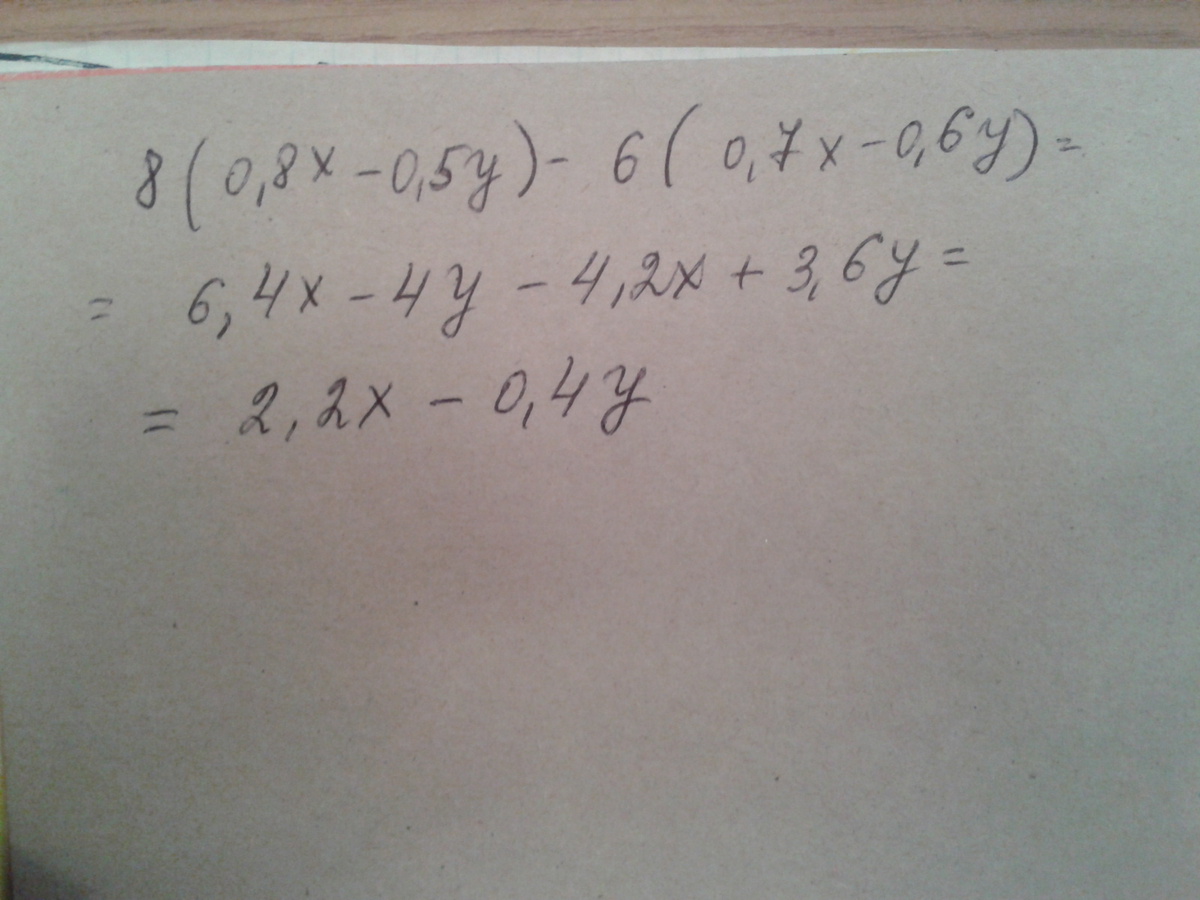 8(0,8x-0,5y)- 6(0,7x-0,6y)=
= 6,4x-4y-4,2x+3,6y=
= 2,2x-0,4y